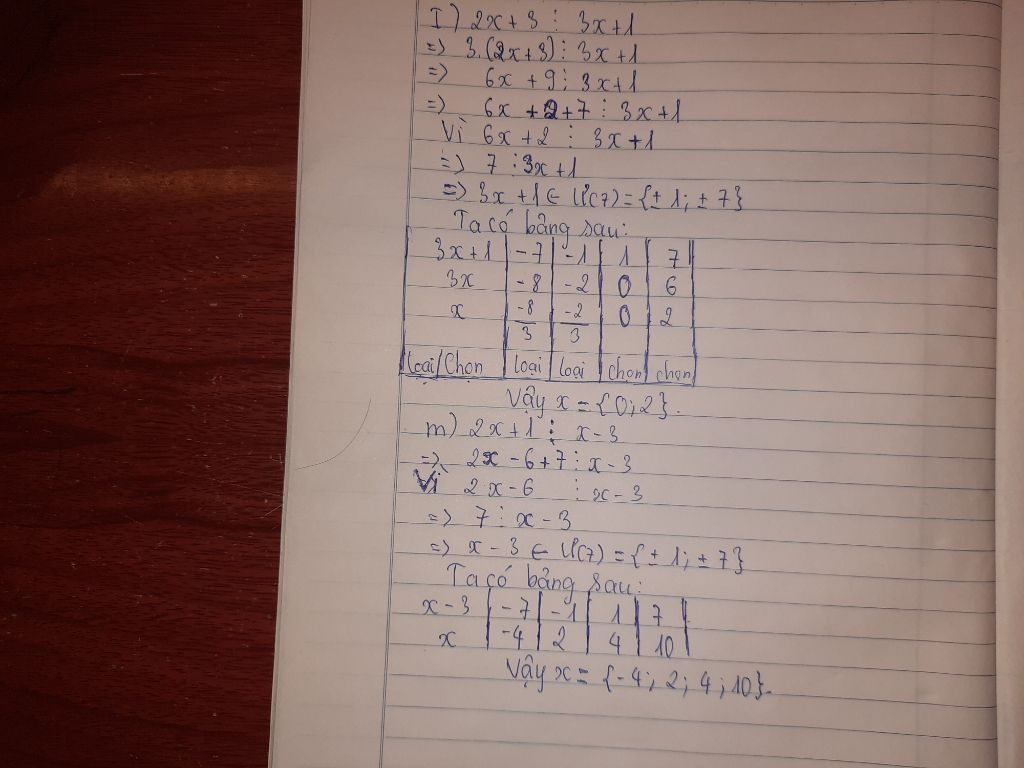 I) 2x+3 ⋮ 3x+1
=> 3.(2x+3) ⋮ 3x+1
=> 6x+9 ⋮ 3x+1
=> 6x+2+7 ⋮ 3x+1
Vì 6x+2 ⋮ 3x+1
=> 7 ⋮ 3x+1
=> 3x+1 ∈ Ư(7) = {±1; ±7}
Ta có bảng sau:
3x+1 | -7 | -1 | 1 | 7
3x | -8 | -2 | 0 | 6
x | -8/3 | -2/3 | 0 | 2
Loại/Chọn | loại | loại | chọn | chọn
Vậy x = {0; 2}.
m) 2x+1 ⋮ x-3
=> 2x-6+7 ⋮ x-3
Vì 2x-6 ⋮ x-3
=> 7 ⋮ x-3
=> x-3 ∈ Ư(7) = {±1; ±7}
Ta có bảng sau:
x-3 | -7 | -1 | 1 | 7
x | -4 | 2 | 4 | 10
Vậy x = {-4; 2; 4; 10}.